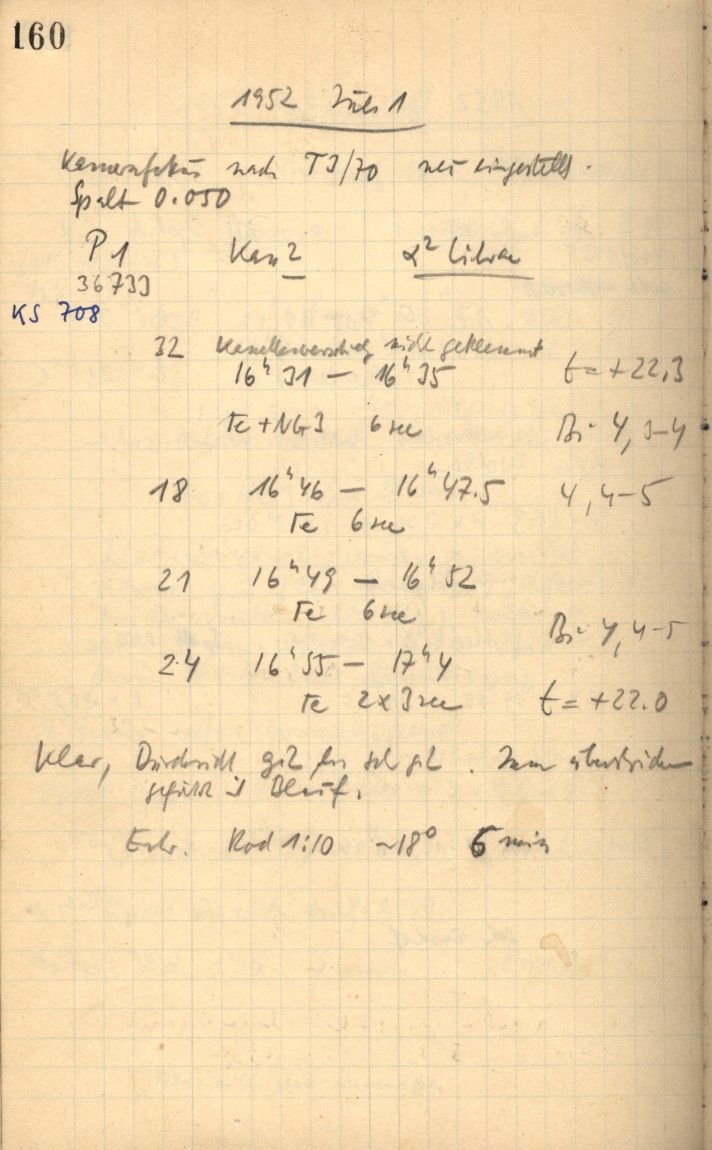 160
1952 Juli 1
Kamerafokus nach T3/70 neu eingestellt.
Spalt 0.050
P1 Kam 2 α² Librae
36733
KS 708
32 nicht geklemmt
16ʰ31 — 16ʰ35 t = +22,3
Fe+NG3 6 sec Bi 4, 3-4
18 16ʰ46 — 16ʰ47.5 4, 4-5
Fe 6 sec
21 16ʰ49 — 16ʰ52
Fe 6 sec Bi 4, 4-5
24 16ʰ55 — 17ʰ4
Fe 2x3 sec t = +22.0
Klar, Durchsicht gut bis sehr gut.
Entw. Rod 1:10 ~18° 6 min